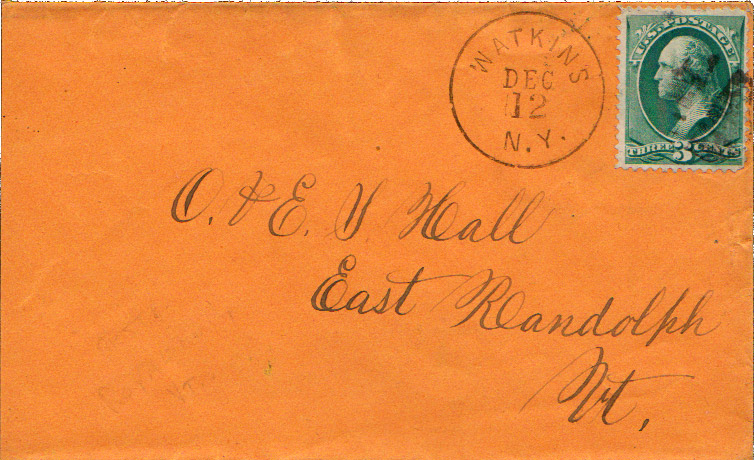 WATKINS
DEC
12
N.Y.
U.S. POSTAGE
THREE 3 CENTS
O. & E. J. Hall
East Randolph
Vt,